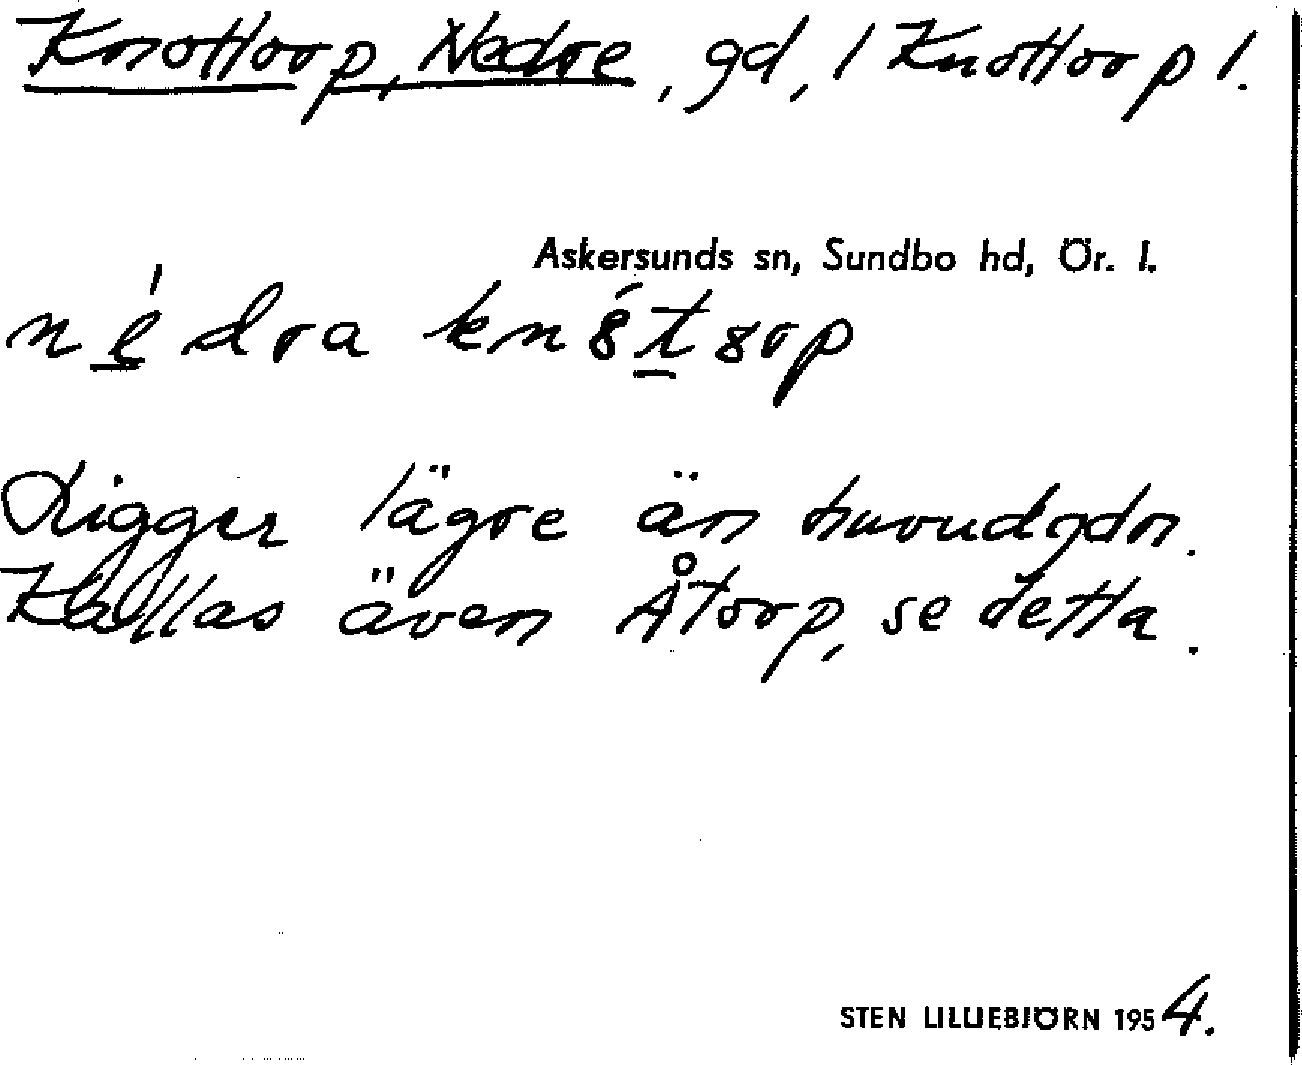 Knottorp, Nedre, gd, 1 Knottorp 1.
Askersunds sn, Sundbo hd, Ör. l.
né̱dra kn8́ṯ8rp
Ligger lägre än huvudgdn.
Kallas även Åtorp, se detta.
STEN LILLIEBJÖRN 1954.